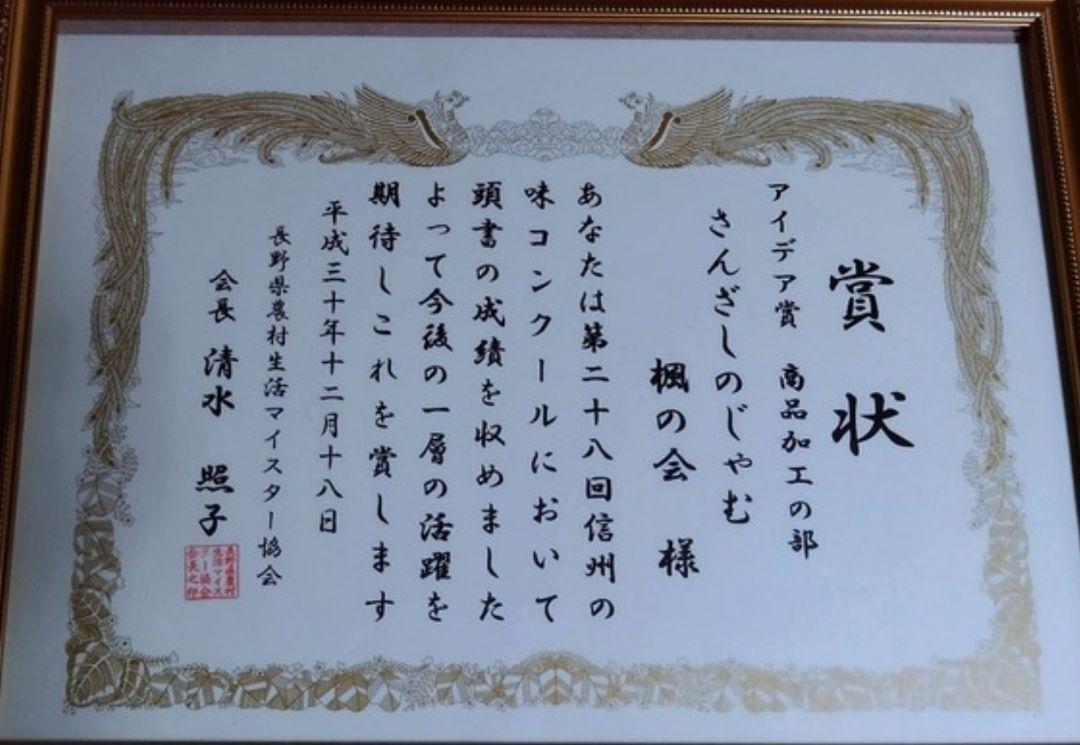 賞状
アイデア賞 商品加工の部
さんざしのじゃむ
楓の会 様
あなたは第二十八回信州の
味コンクールにおいて
頭書の成績を収めました
よって今後の一層の活躍を
期待しこれを賞します
平成三十年十二月十八日
長野県農村生活マイスター協会
会長 清水 照子
長野県農村
生活マイス
ター協会
会長之印